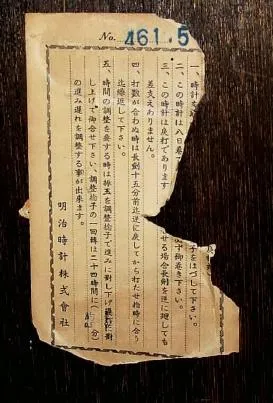 No. 461.5
一、時計を
子をはづして下さい。
二、この時計は八日巻
ず御巻き下さい。
三、この時計は戻打であります
せる場合長劍を逆に廻しても
差支えありません。
四、打數が合わぬ時は長劍十五分前迄逆に戻してから打たせ指時に合う
迄繰返して下さい。
五、時間の調整を要する時は振玉を調整捻子で進みに對し下げ遲れに對
し上げて御合せ下さい、調整捻子の一回轉は二十四時間に( 分)
の進み遲れを調整する事が出來ます。
明治時計株式會社